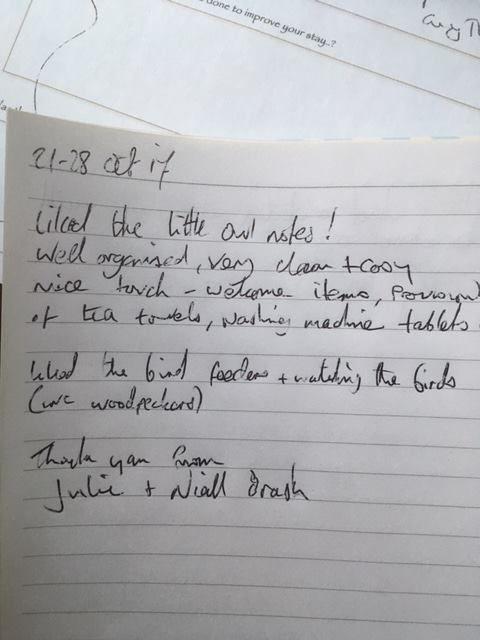 done to improve your stay..?
21-28 Oct 17
Liked the little owl notes!
Well organised, very clean + cosy
Nice touch - welcome items, provision
of tea towels, washing machine tablets
Liked the bird feeders + watching the birds
(inc woodpeckers)
Thank you from
Julie + Niall